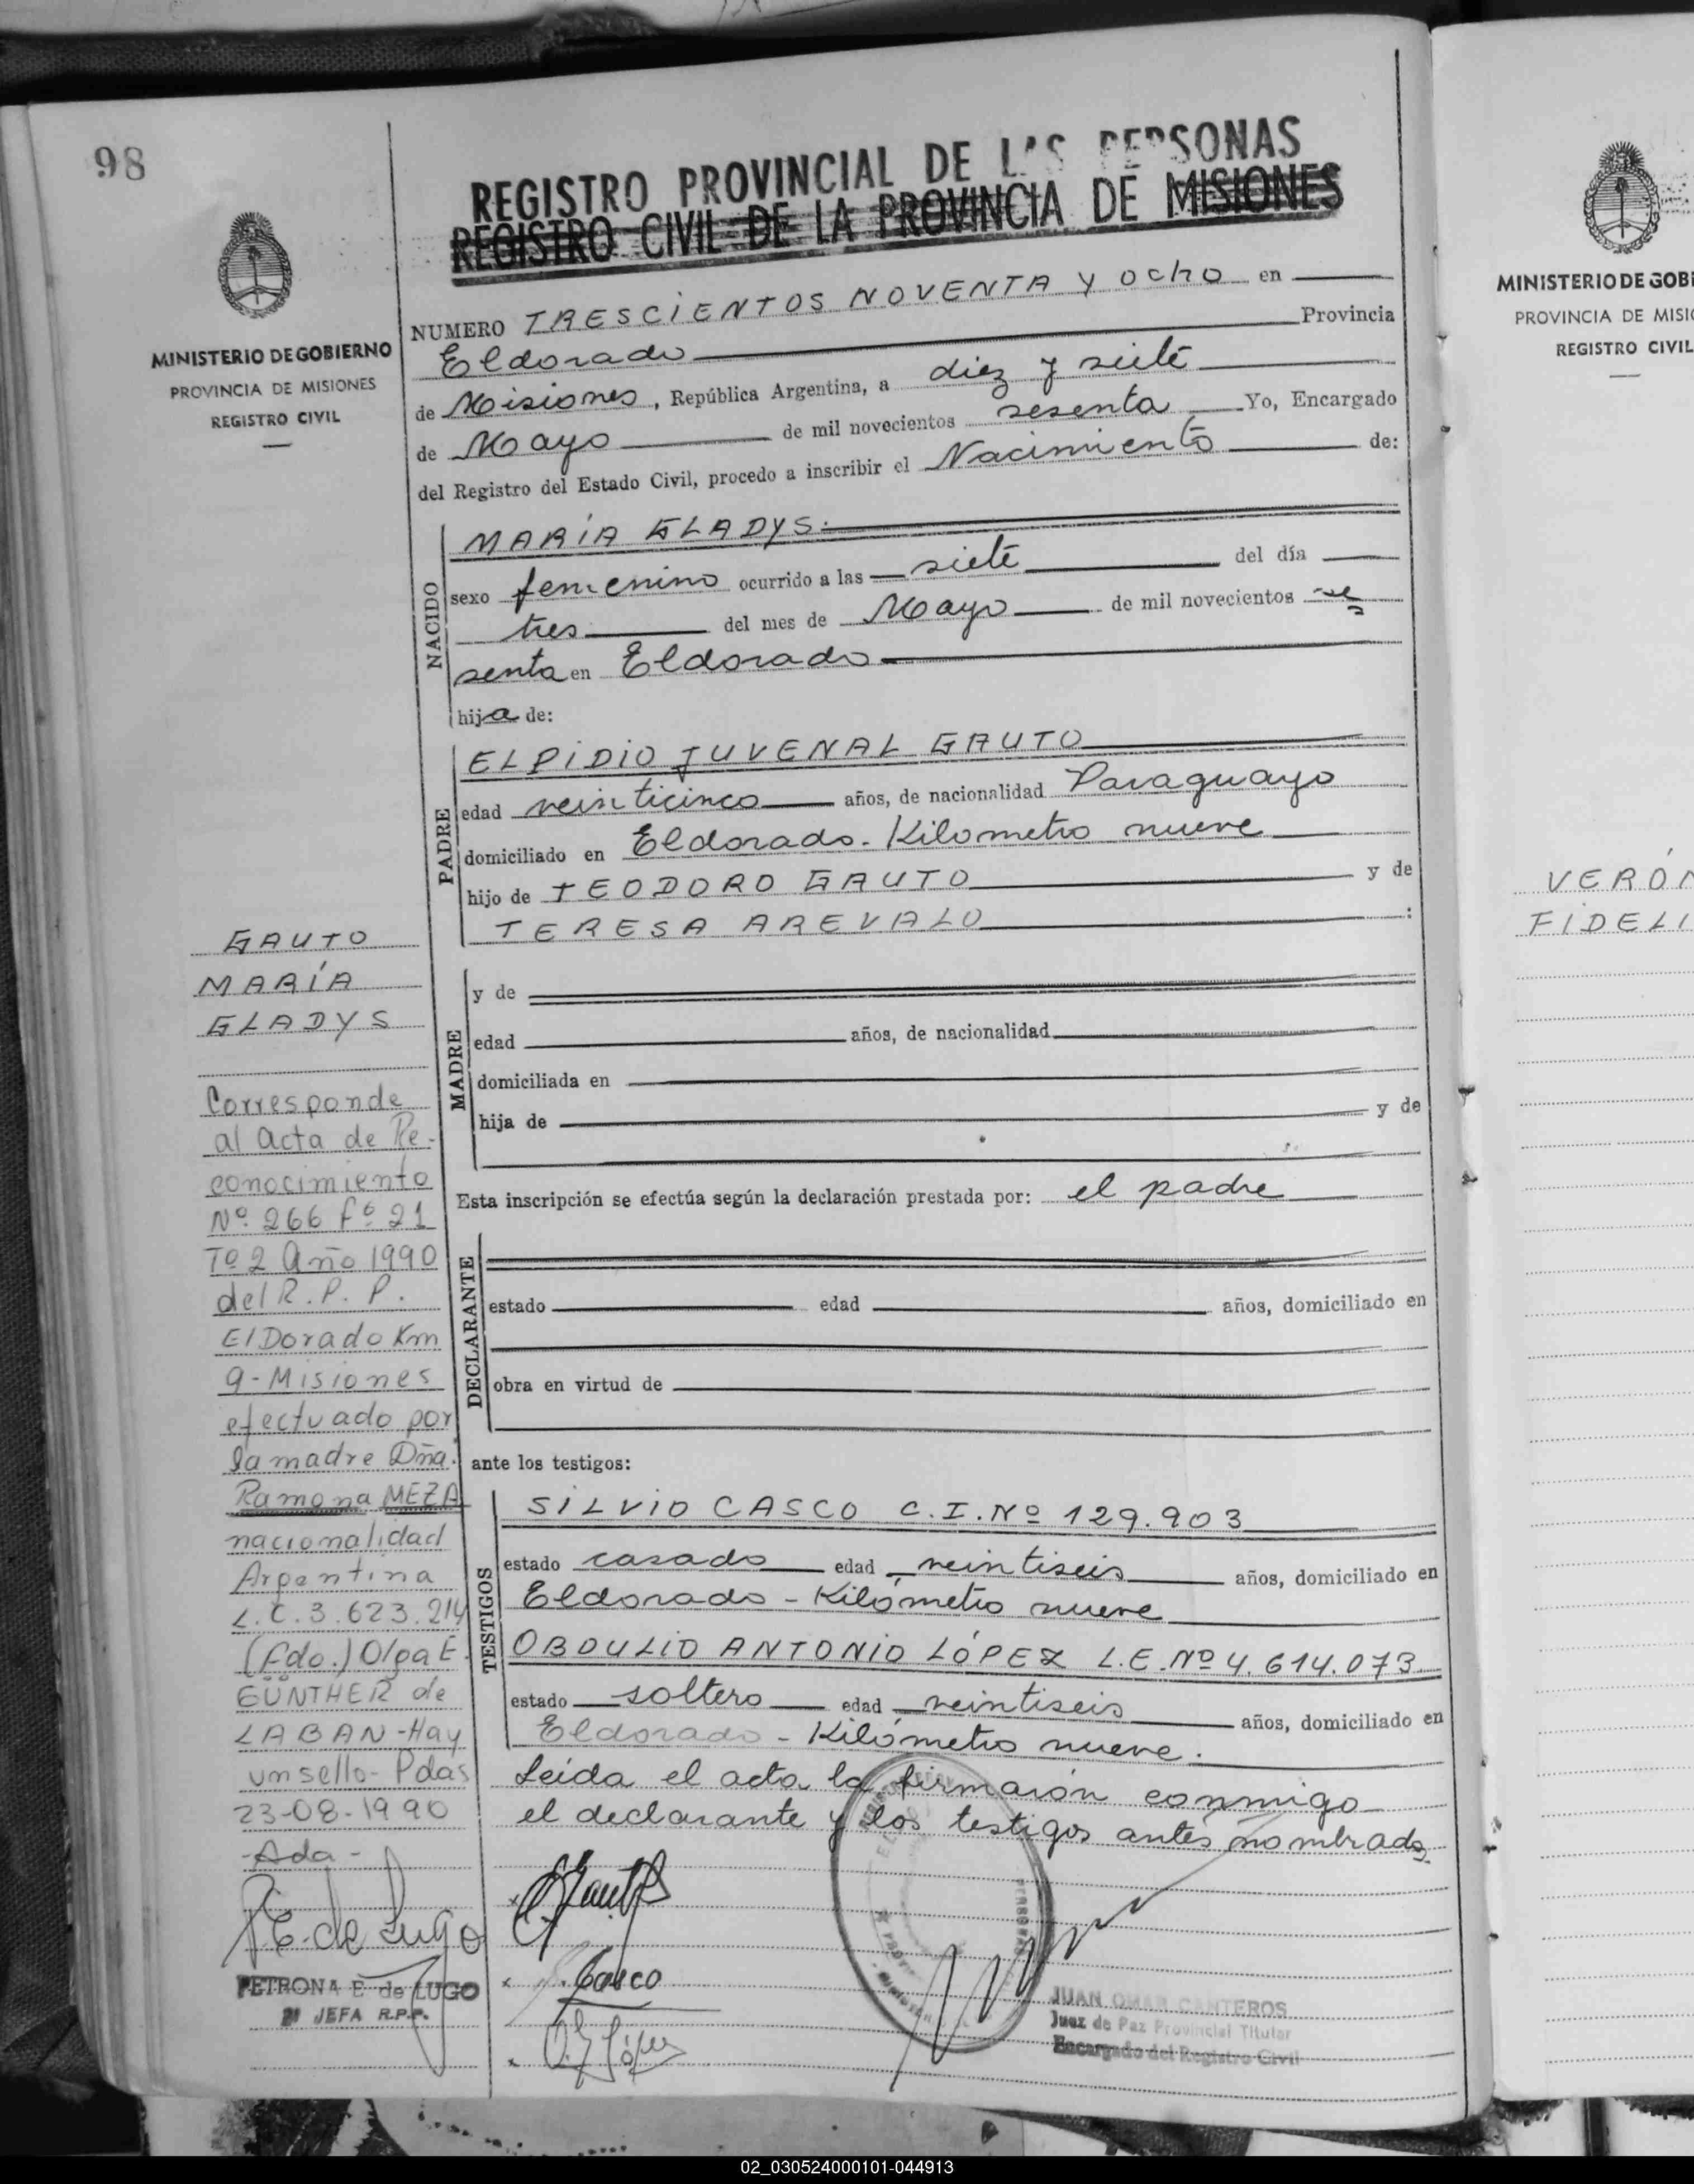 98
REGISTRO PROVINCIAL DE LAS PERSONAS
REGISTRO CIVIL DE LA PROVINCIA DE MISIONES
MINISTERIO DE GOBIERNO
PROVINCIA DE MISIONES
REGISTRO CIVIL
NUMERO TRESCIENTOS NOVENTA Y OCHO en
Eldorado Provincia
de Misiones, República Argentina, a diez y siete
de Mayo de mil novecientos sesenta Yo, Encargado
del Registro del Estado Civil, procedo a inscribir el Nacimiento de:
NACIDO
MARÍA GLADYS.
sexo femenino ocurrido a las siete del día
tres del mes de Mayo de mil novecientos se=
senta en Eldorado
hija de:
PADRE
ELPIDIO JUVENAL GAUTO
edad veinticinco años, de nacionalidad Paraguayo
domiciliado en Eldorado. Kilometro nueve
hijo de TEODORO GAUTO y de
TERESA AREVALO :
MADRE
y de
edad años, de nacionalidad
domiciliada en
hija de y de
Esta inscripción se efectúa según la declaración prestada por: el padre
DECLARANTE
estado edad años, domiciliado en
obra en virtud de
ante los testigos:
TESTIGOS
SILVIO CASCO C.I.Nº 129.903
estado casado edad veintiseis años, domiciliado en
Eldorado - Kilómetro nueve
OBDULIO ANTONIO LÓPEZ L.E.Nº 4.614.073
estado soltero edad veintiseis años, domiciliado en
Eldorado - Kilómetro nueve.
Leida el acta la firmaron conmigo
el declarante y los testigos antes nombrados
GAUTO
MARÍA
GLADYS
Corresponde
al acta de Re-
conocimiento
Nº 266 Fº 21
Tº 2 Año 1990
del R. P. P.
ElDorado Km
9-Misiones
efectuado por
la madre Dña.
Ramona MEZA
nacionalidad
Argentina
L.C. 3.623.214
(Fdo.) Olga E.
GÜNTHER de
LABAN-Hay
un sello- Pdas
23-08-1990
-Ada-
E. de Lugo
PETRONA E de LUGO
JEFA R.P.P.
Gauto
Casco
López
JUAN OMAR CANTEROS
Juez de Paz Provincial Titular
Encargado del Registro Civil
MINISTERIO DE GOBI
PROVINCIA DE MISIO
REGISTRO CIVIL
VERÓN
FIDELI
02_030524000101-044913